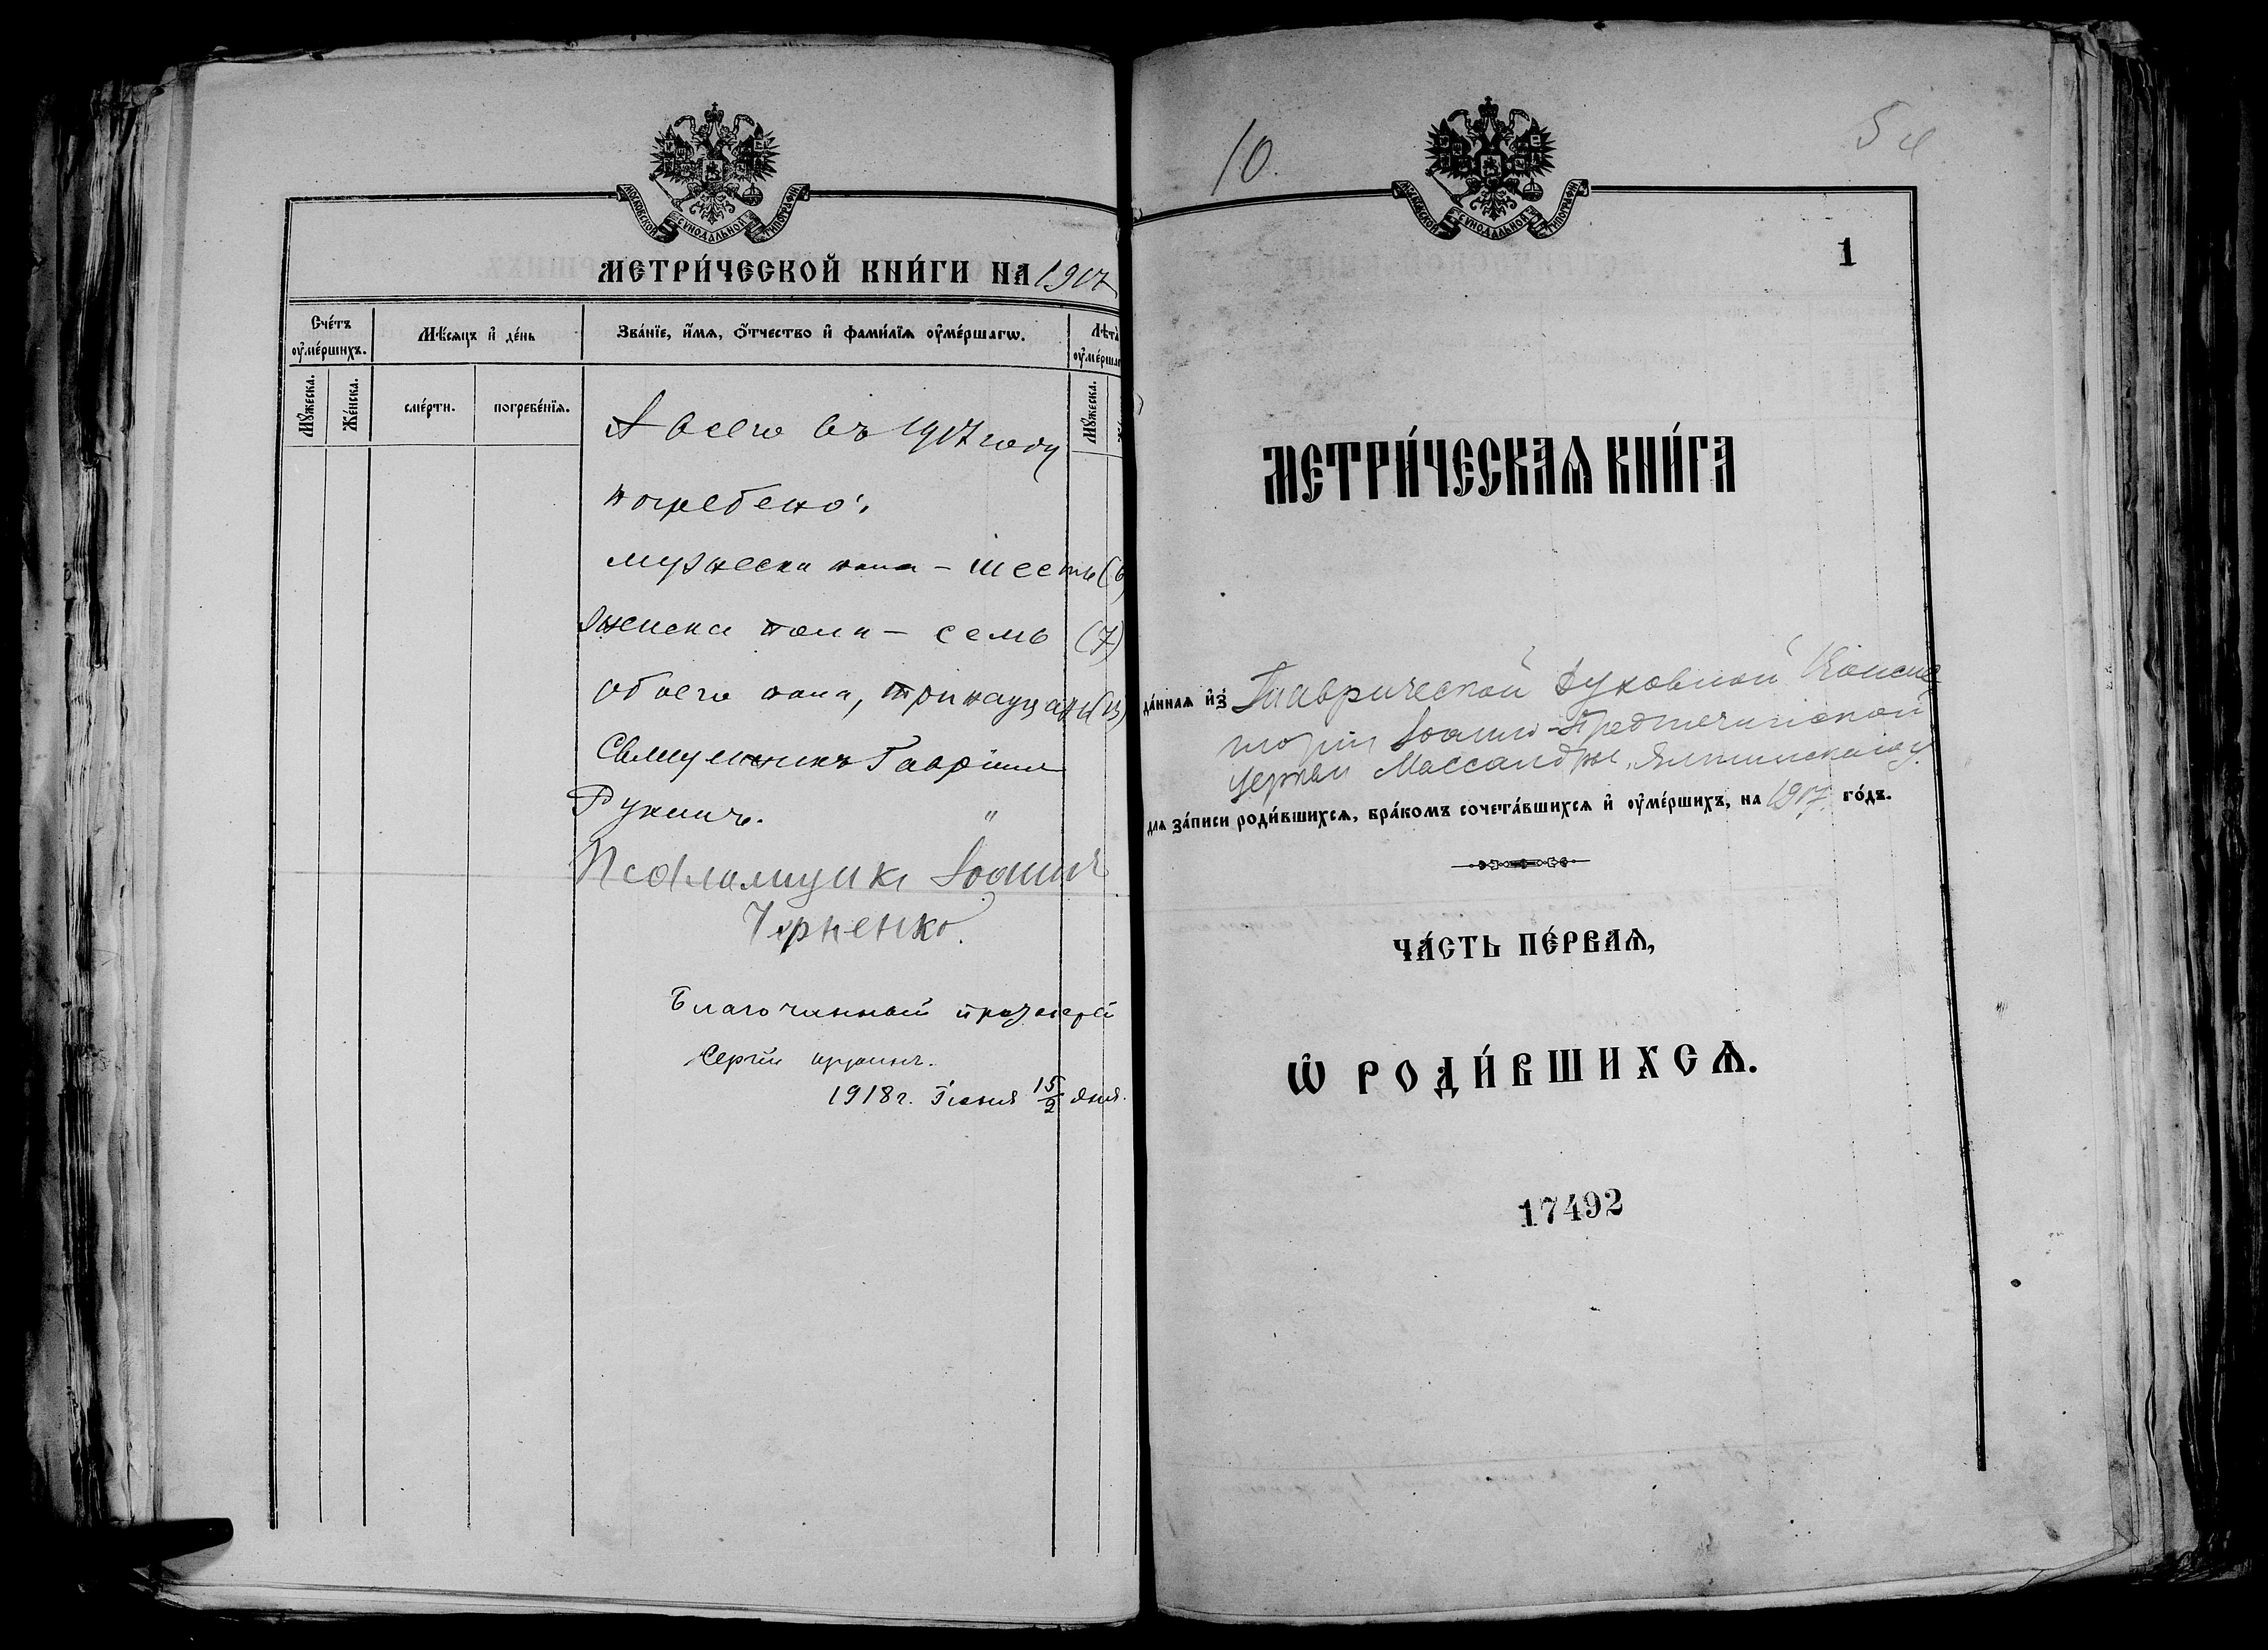 МОСКОВСКОЙ СѴНОДАЛЬНОЙ ТИПОГРАФІИ
МЕТРИ́ЧЕСКОЙ КНИ́ГИ НА 1917
Сче́тъ ᲂу҆ме́ршихъ.
Мѣ́сяцъ и҆ де́нь
Зва́нїе, и҆́мѧ, ѻ҆́тчество и҆ фами́лїѧ ᲂу҆ме́ршагѡ.
Лѣта̀
ᲂу҆ме́ршаг
Мꙋ́жеска.
Же́нска.
сме́рти.
погребе́нїѧ.
Мꙋ́жеска.
А всего въ 1917 году
погребено:
мужеска пола – шесть (6)
женска пола – семь (7)
обоего пола, тринадцать (13)
Священникъ Гавріилъ
Псаломщикъ Іоаннъ
Черненко.
Благочинный протоіерей
Сергій
1918 г. Іюня 15/2 дня.
10.
МОСКОВСКОЙ СѴНОДАЛЬНОЙ ТИПОГРАФІИ
1
МЕТРИ́ЧЕСКАѦ КНИ́ГА
да́ннаѧ и҆з̾ Таврической Духовной Консис
торіи Іоанно-Предтечинской
церкви Массандры, Ялтинскаго у.
длѧ за́писи роди́вшихсѧ, бра́комъ сочета́вшихсѧ и҆ ᲂу҆ме́ршихъ, на 1917 го́дъ.
ЧА́СТЬ ПЕ́РВАѦ,
Ѡ҆ РОДИ́ВШИХСѦ.
17492